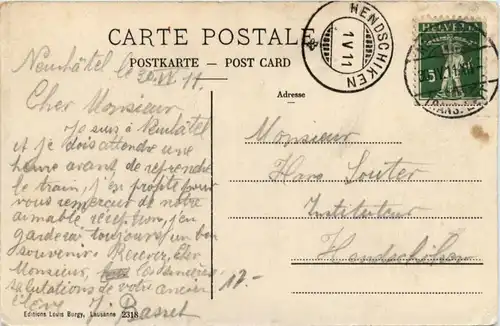 CARTE POSTALE
POSTKARTE — POST CARD
HENDSCHIKEN
1 V 11
HELVETIA
5
Adresse
Neuhâtel le 30. IV 11.
Cher Monsieur
Je suis à Neuhâtel
et je dois attendre une
heure avant de reprendre
le train, j'en profite pour
vous remercier de notre
aimable réception, j'en
garderai toujours un bon
souvenir. Recevez, cher
Monsieur, les sincères
salutations de votre ancien
élève J. Basset
Monsieur
Hans Souter
Instituteur
Hendschiken
17.-
Editions Louis Burgy, Lausanne 2318